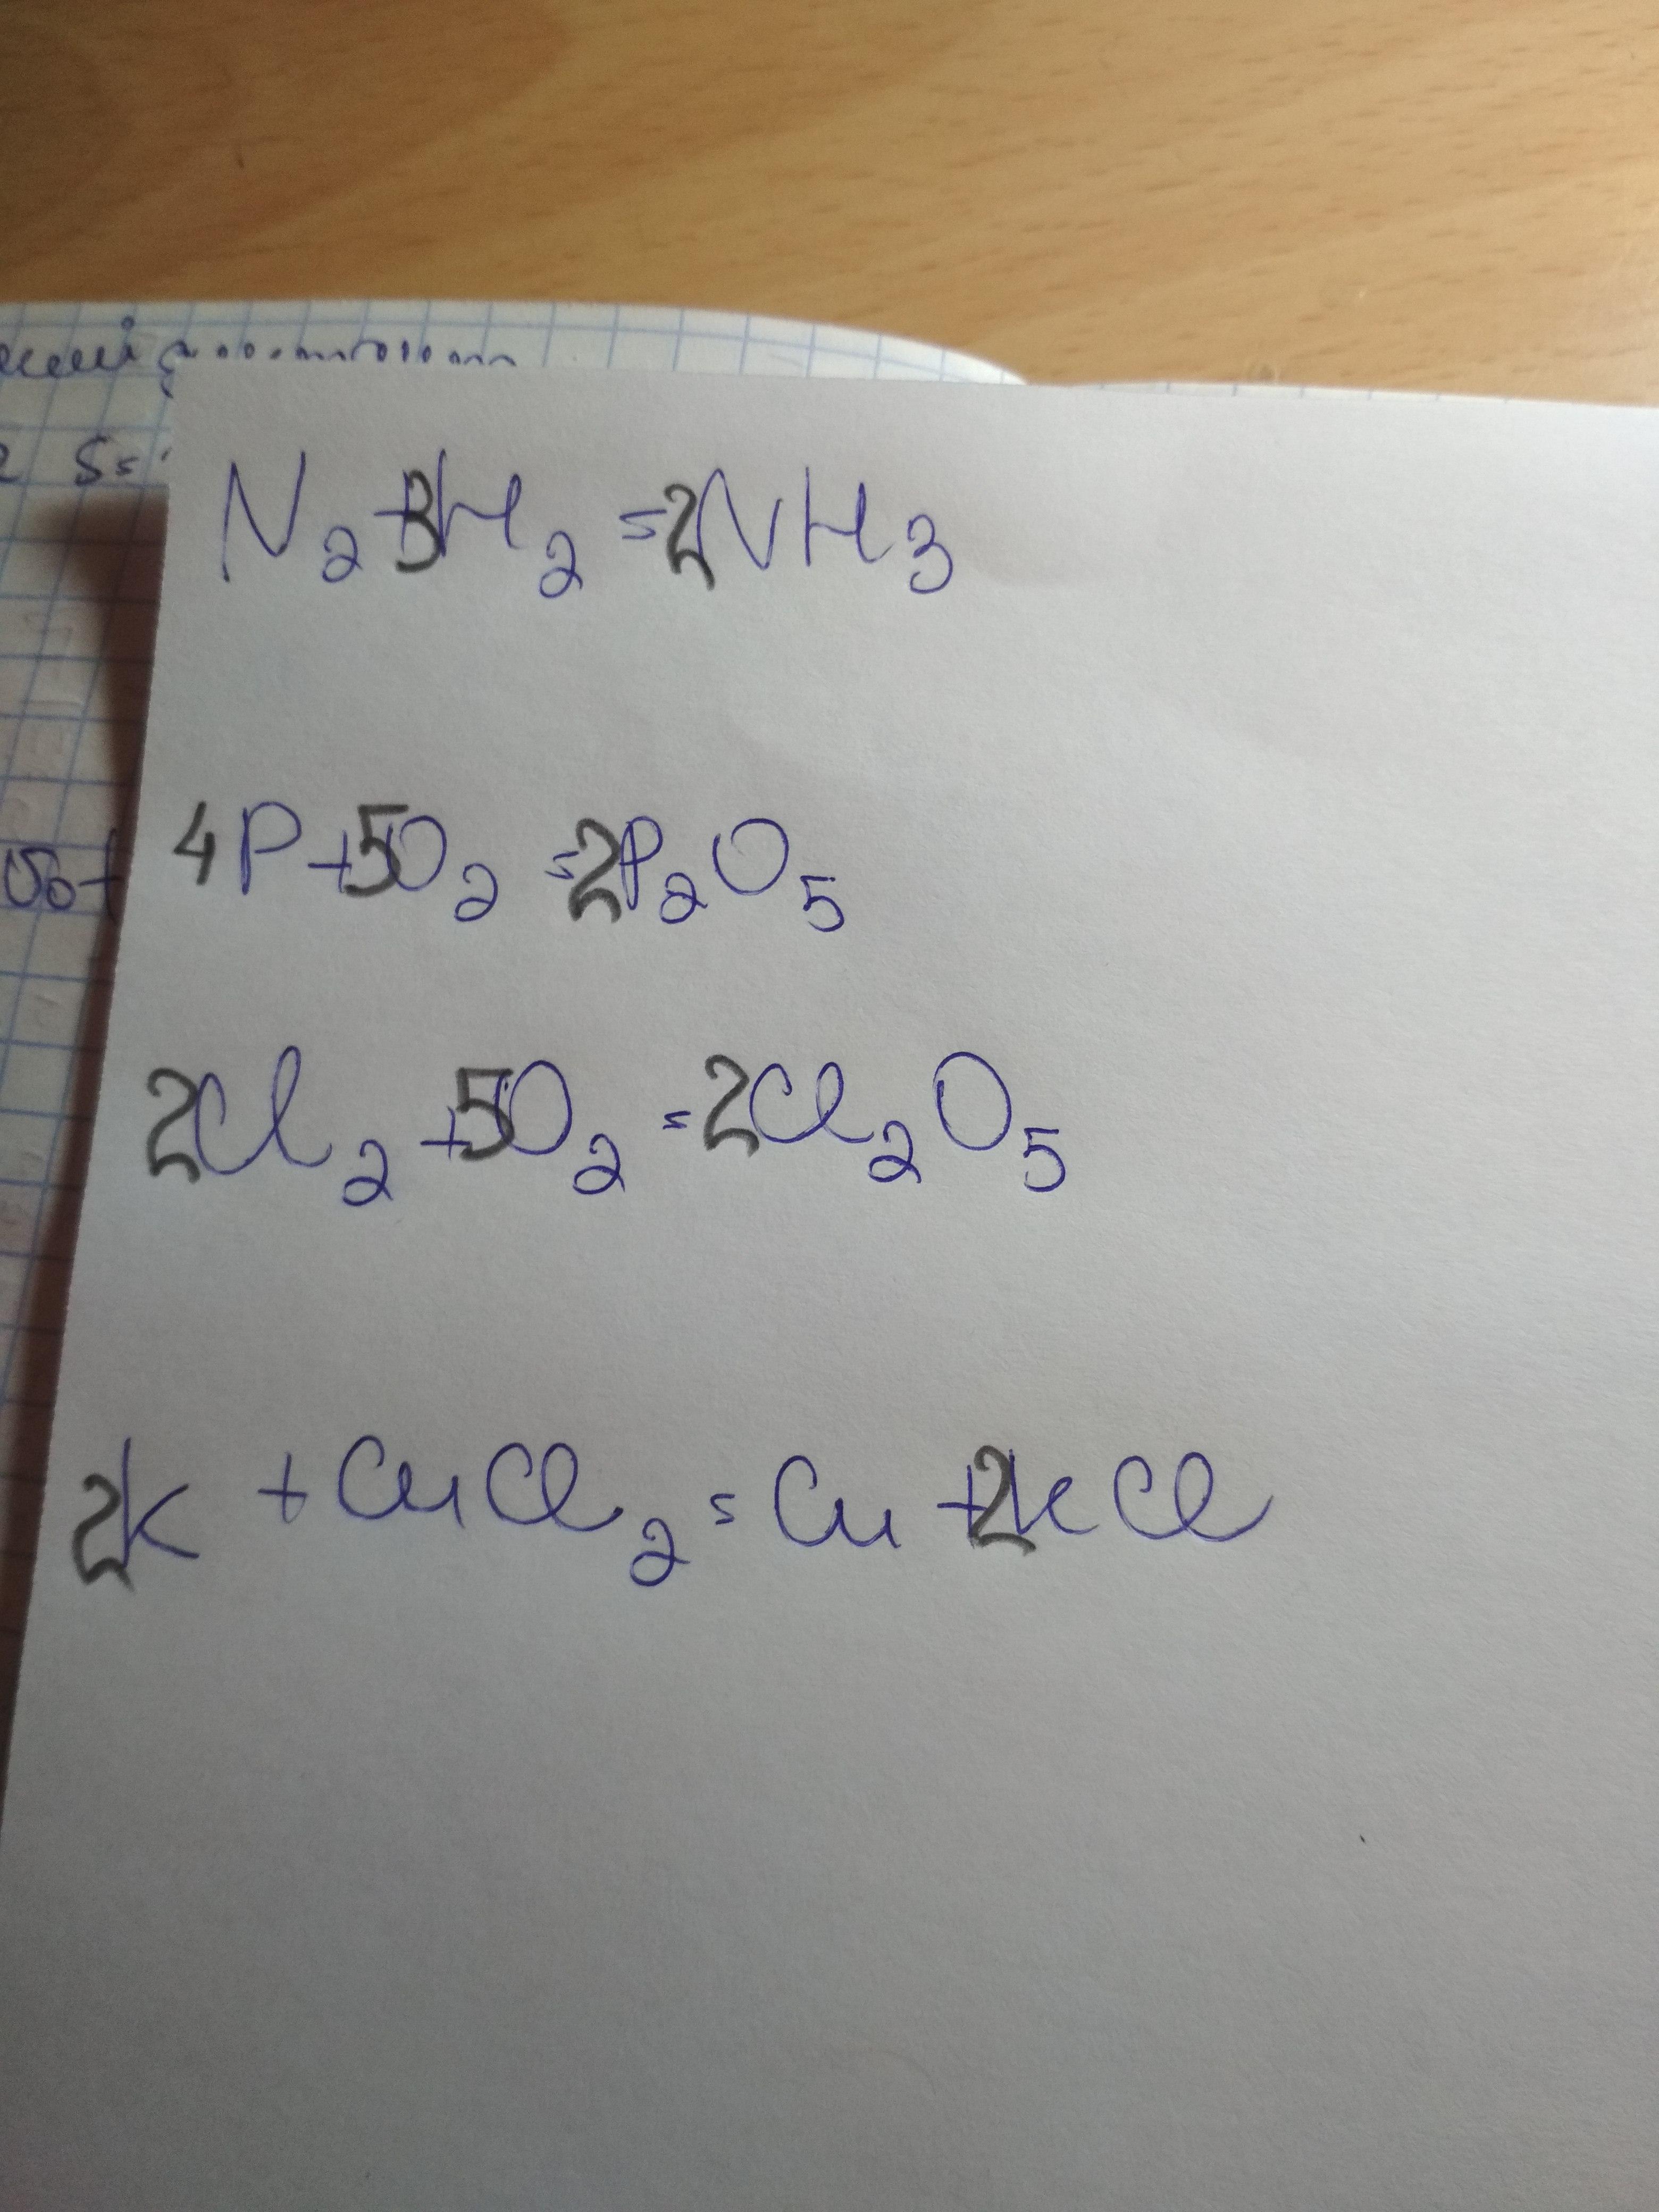 2 S=
N₂+3H₂=2NH₃
4P+5O₂=2P₂O₅
2Cl₂+5O₂=2Cl₂O₅
2K+CuCl₂=Cu+2KCl